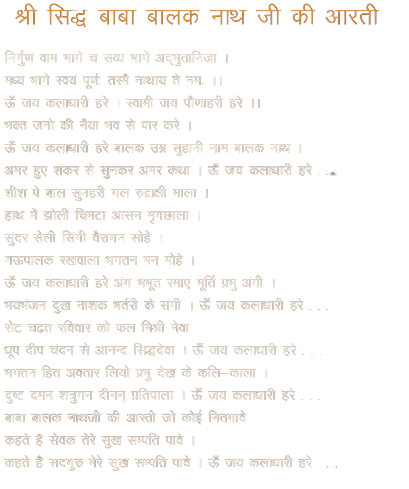 श्री सिद्ध बाबा बालक नाथ जी की आरती
निर्गुण वाम भागे च सव्य भागे अद्भुतानिजा ।
मध्य भागे स्वयं पूर्णः तस्मै नाथाय ते नमः ।।
ऊँ जय कलाधारी हरे । स्वामी जय पौणाहारी हरे ।।
भक्त जनो की नैया भव से पार करे ।
ऊँ जय कलाधारी हरे बालक उम्र सुहानी नाम बालक नाथ ।
अमर हुए शंकर से सुनकर अमर कथा । ऊँ जय कलाधारी हरे . . .
शीश पे बाल सुनहरी गल रुद्राक्षी माला ।
हाथ में झोली चिमटा आसन मृगछाला ।
सुंदर सेली सिंगी वैरागन सोहे ।
गऊपालक रखवाला भगतन मन मोहे ।
ऊँ जय कलाधारी हरे अंग भभूत रमाए मूर्ति प्रभु अंगी ।
भयभंजन दुख नाशक भर्तरी के संगी । ऊँ जय कलाधारी हरे . . .
रोट चढ़त रविवार को फल मिश्री मेवा
धूप दीप चंदन से आनन्द सिद्धदेवा । ऊँ जय कलाधारी हरे . . .
भगतन हित अवतार लियो प्रभु देख के कलि–काला ।
दुष्ट दमन शत्रुगन दीनन् प्रतिपाला । ऊँ जय कलाधारी हरे . . .
बाबा बालक नाथजी की आरती जो कोई नितगावे
कहते है सेवक तेरे सुख सम्पति पावे ।
कहते है सदगुरु मेरे सुख सम्पति पावे । ऊँ जय कलाधारी हरे . . .